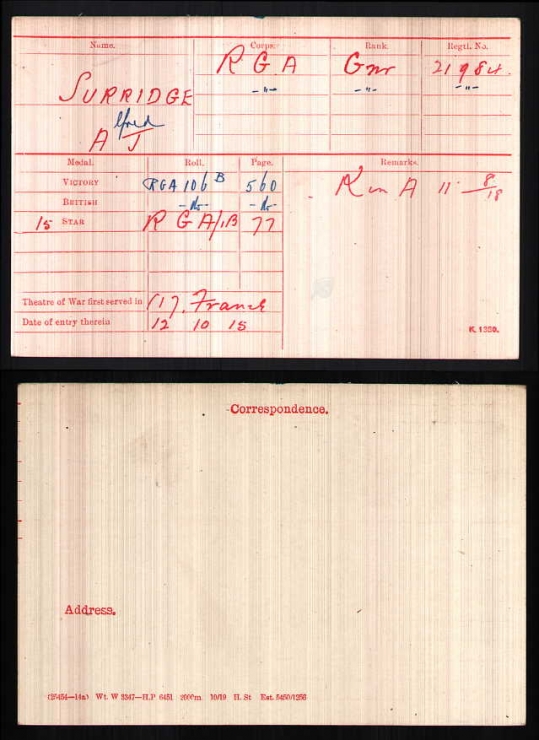 Name. Corps. Rank. Regtl. No.
SURRIDGE R G A Gnr 21984.
-"- -"- -"-
Alfred J
Medal. Roll. Page. Remarks.
VICTORY RGA 106 B 560 K in A 11. 8/18
BRITISH -do- -do-
15 STAR R G A/1B 77
Theatre of War first served in (1). France
Date of entry therein 12 10 15
K. 1380.
Correspondence.
Address.
Wt. W 3347—H.P 6451 2000m 10/19 H. St Est. 5450/1256